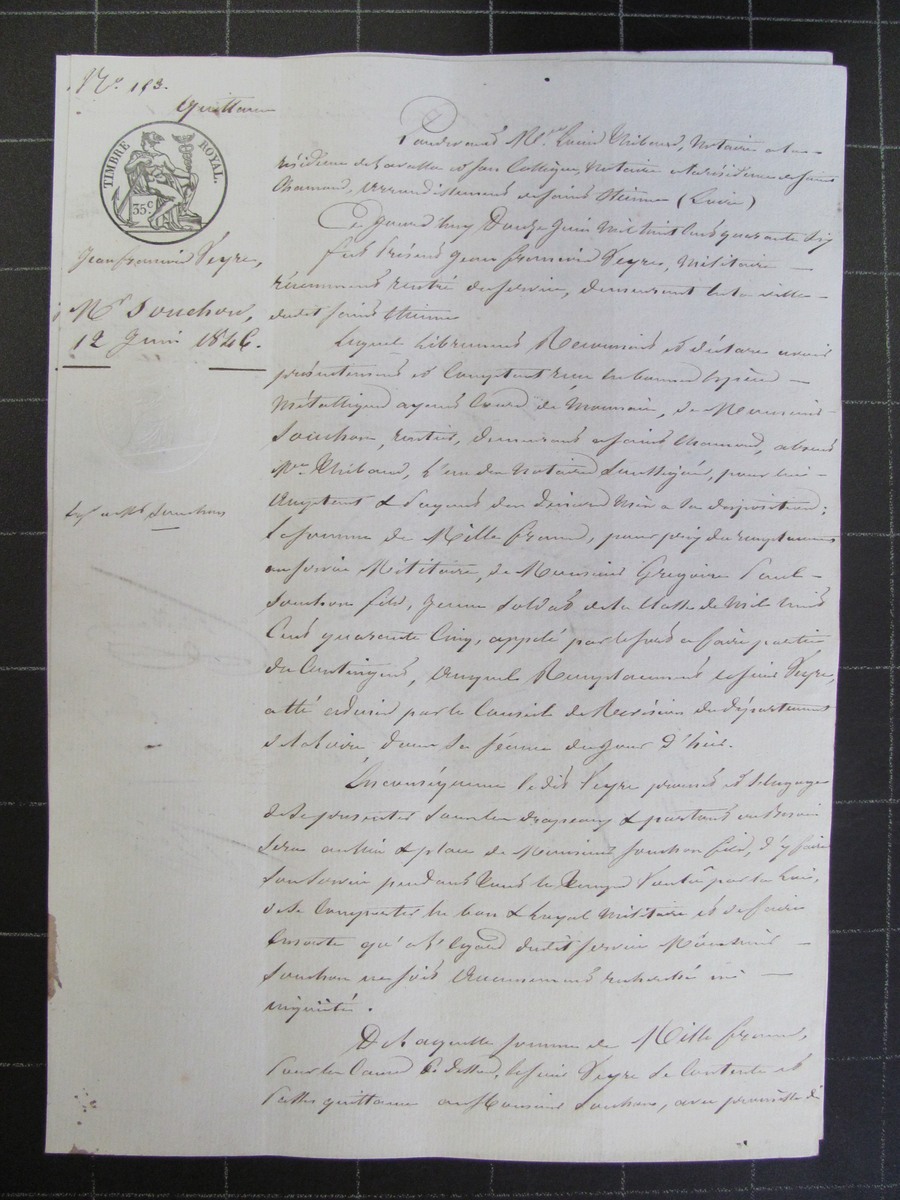 N.º 193.
Quittance
TIMBRE ROYAL.
35 c
Jean françois Veyre,
à
Mr Souchon,
12 Juin 1846.
Souchon
Pardevant Mre. Thibaud, Notaire à la
résidence de Lavalla et son Collègue Notaire à la résidence de Saint
Chamond, arrondissement de Saint Etienne (Loire)
Ce jourd'huy Douze Juin mil huit cent quarante six
fut présent Jean françois Veyre, Militaire
récemment rentré du service, demeurant en la ville
dudit Saint Etienne
Lequel librement Reconnait et déclare avoir
présentement et comptant reçu en bonnes espèces
métalliques ayant cours de Monnaie, de Monsieur
Souchon, rentier, demeurant à Saint Chamond, absent
Mre. Thibaud, l'un des Notaires soussignés, pour lui
acceptant & payant des deniers mis à sa disposition;
la somme de Mille francs, pour prix du remplacement
au service Militaire, de Monsieur Grégoire Paul
Souchon fils, jeune soldat de la classe de mil huit
cent quarante cinq, appelé par le sort à faire partie
du contingent, auquel Remplacement le sieur Veyre,
a été admis par le Conseil de Révision du département
de la Loire, dans sa séance du jour d'hier.
En conséquence le dit Veyre promet et s'engage
de se présenter sous les drapeaux & partout où besoin
sera au lieu & place de Monsieur Souchon fils, d'y faire
son service pendant tout le temps voulu par la Loi,
de se comporter en bon & loyal militaire et de faire
ensorte qu'à l'égard dudit service Monsieur
Souchon ne soit aucunement recherché ni
inquiété.
De laquelle somme de Mille francs,
pour les causes ci dessus, le sieur Veyre se contente et
passe quittance au Monsieur Souchon, avec promesse de